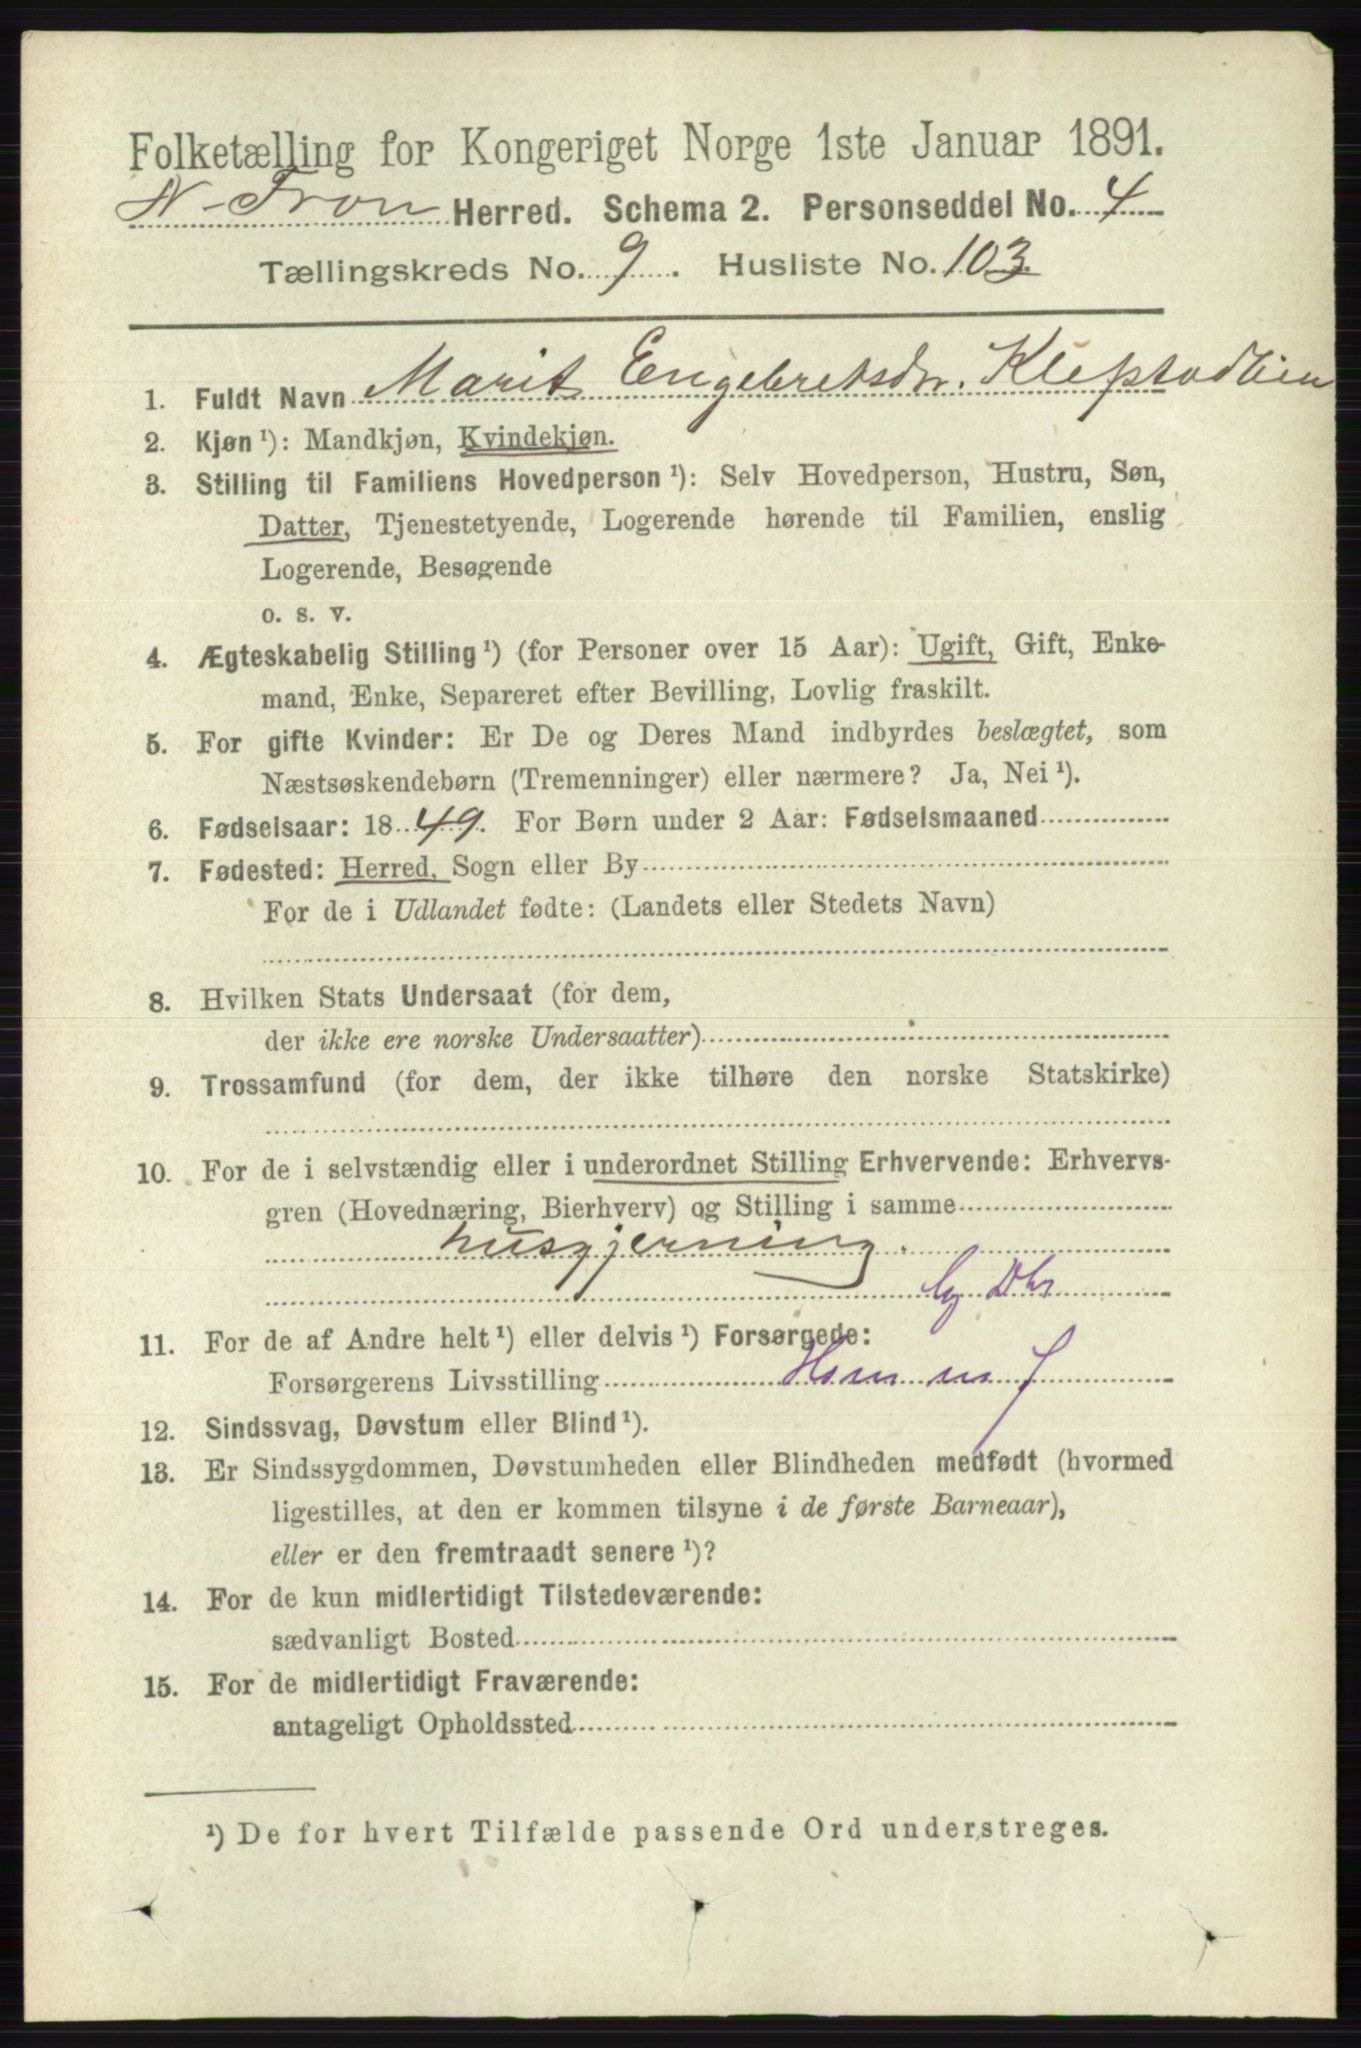 Folketælling for Kongeriget Norge 1ste Januar 1891.
N-Fron Herred. Schema 2. Personseddel No. 4
Tællingskreds No. 9. Husliste No. 103.
1. Fuldt Navn Marit Engebretsdr. Klepstadlien
2. Kjøn ¹): Mandkjøn, Kvindekjøn.
3. Stilling til Familiens Hovedperson ¹): Selv Hovedperson, Hustru, Søn,
Datter, Tjenestetyende, Logerende hørende til Familien, enslig
Logerende, Besøgende
o. s. v.
4. Ægteskabelig Stilling ¹) (for Personer over 15 Aar): Ugift, Gift, Enke-
mand, Enke, Separeret efter Bevilling, Lovlig fraskilt.
5. For gifte Kvinder: Er De og Deres Mand indbyrdes beslægtet, som
Næstsøskendebørn (Tremenninger) eller nærmere? Ja, Nei ¹).
6. Fødselsaar: 1849. For Børn under 2 Aar: Fødselsmaaned
7. Fødested: Herred, Sogn eller By
For de i Udlandet fødte: (Landets eller Stedets Navn)
8. Hvilken Stats Undersaat (for dem,
der ikke ere norske Undersaatter)
9. Trossamfund (for dem, der ikke tilhøre den norske Statskirke)
10. For de i selvstændig eller i underordnet Stilling Erhvervende: Erhvervs-
gren (Hovednæring, Bierhverv) og Stilling i samme
husgjerning.
11. For de af Andre helt ¹) eller delvis ¹) Forsørgede:
Forsørgerens Livsstilling
12. Sindssvag, Døvstum eller Blind ¹).
13. Er Sindssygdommen, Døvstumheden eller Blindheden medfødt (hvormed
ligestilles, at den er kommen tilsyne i de første Barneaar),
eller er den fremtraadt senere ¹)?
14. For de kun midlertidigt Tilstedeværende:
sædvanligt Bosted
15. For de midlertidigt Fraværende:
antageligt Opholdssted
¹) De for hvert Tilfælde passende Ord understreges.